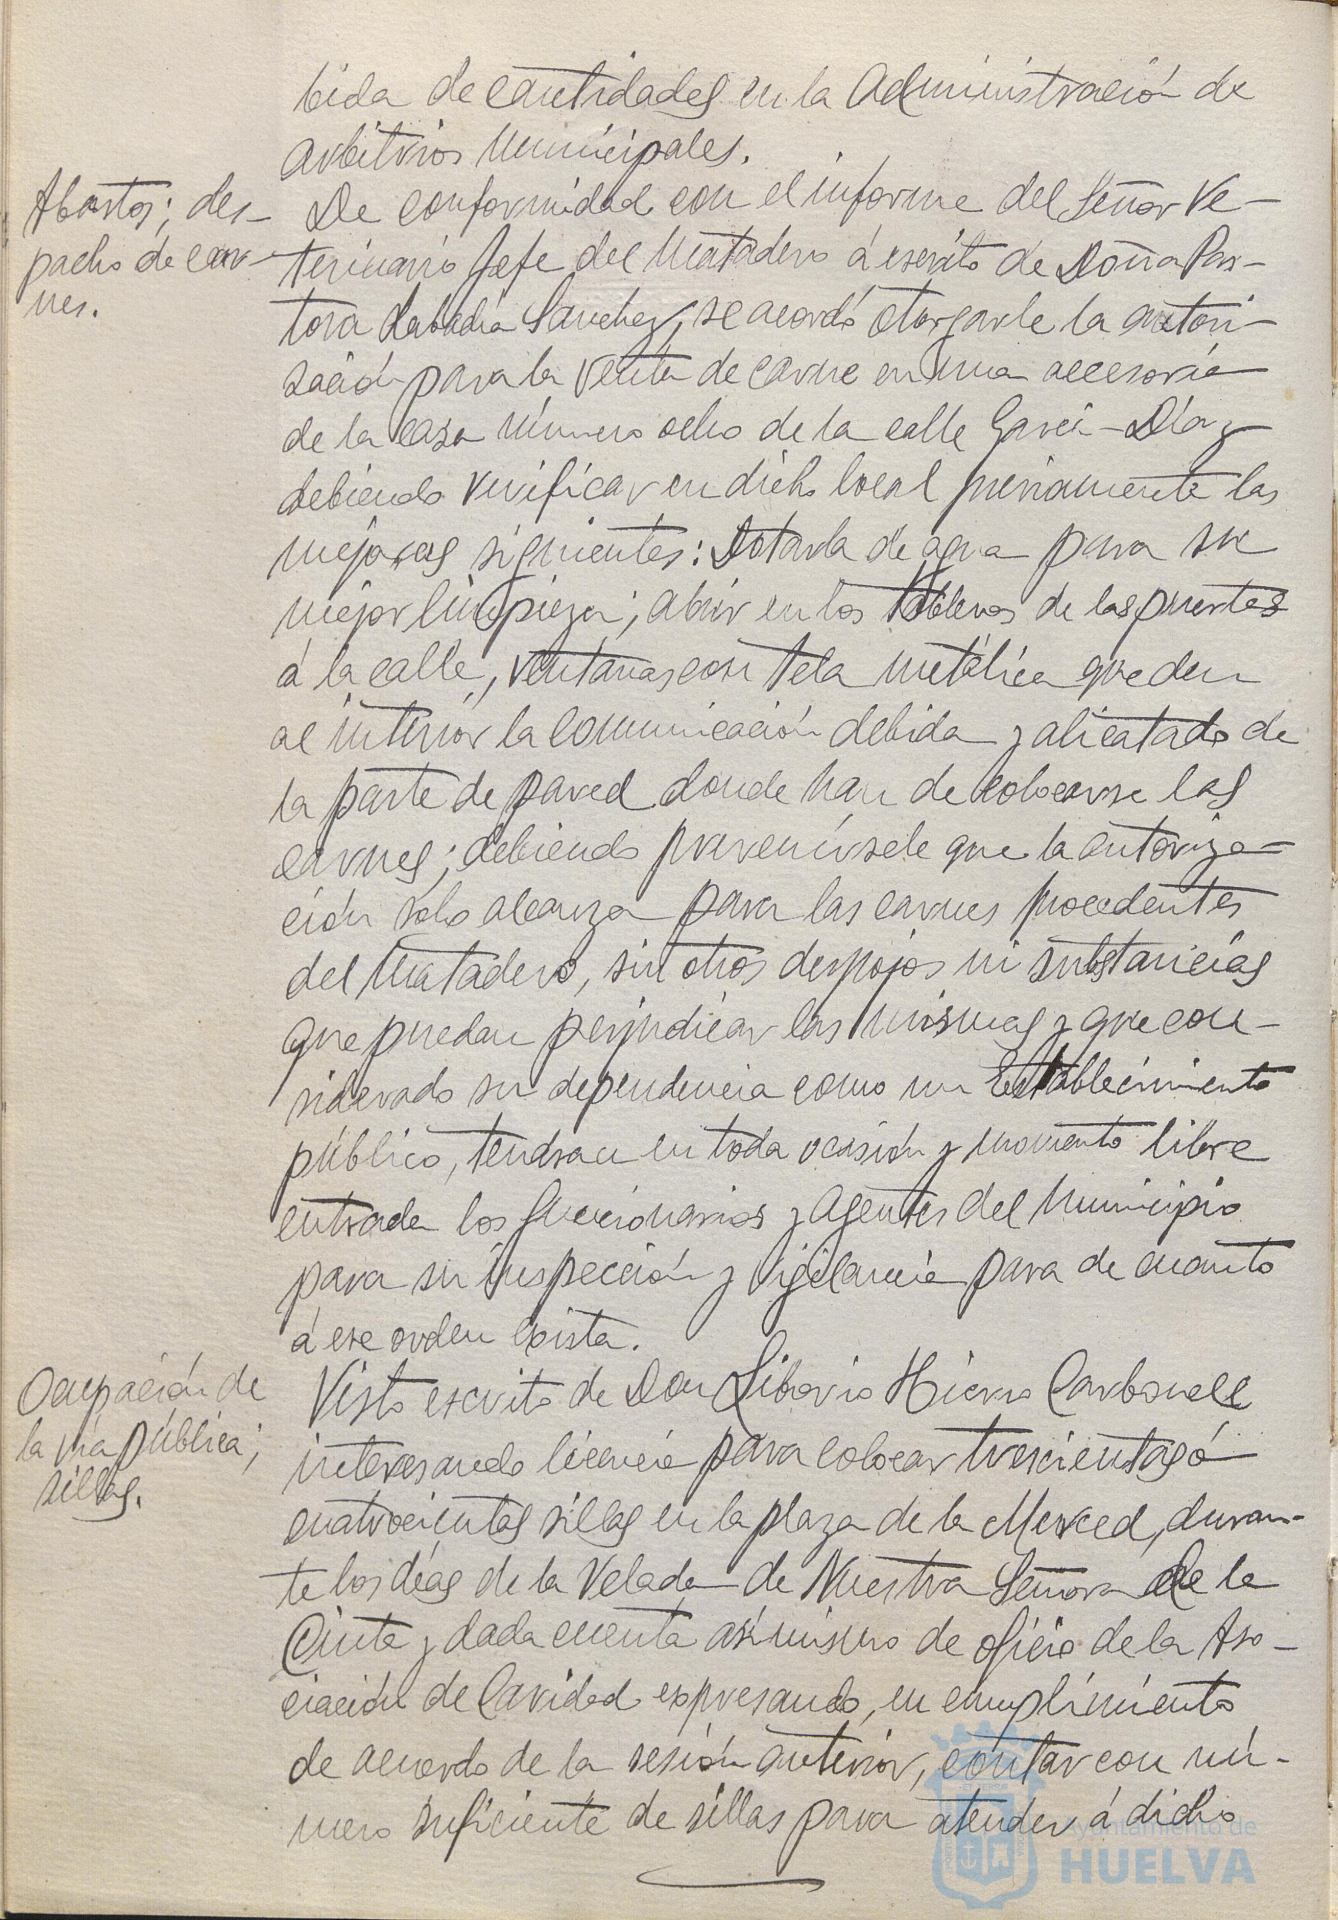 bida de cantidades en la Administración de
arbitrios Municipales.
Abastos; des-
pacho de car-
nes.
De conformidad con el informe del Señor Ve-
terinario Jefe del Matadero á escrito de Doña Pas-
tora Labadía Sanchez, se acordó otorgarle la autori-
zación para la venta de carne en una accesoria
de la casa número ocho de la calle Garci-Díaz
debiendo verificar en dicho local previamente las
mejoras siguientes: Dotarla de agua para su
mejor limpieza; abrir en los tableros de las puertas
á la calle, ventanas con tela metálica que den
al interior la comunicación debida y alicatado de
la parte de pared donde han de colocarse las
carnes; debiendo prevenírsele que la autoriza-
ción solo alcanza para las carnes procedentes
del Matadero, sin otros despojos ni substancias
que puedan perjudicar las mismas y que con-
siderado su dependencia como un Establecimiento
público, tendran en toda ocasión y momento libre
entrada los funcionarios y agentes del Municipio
para su inspección y vigilancia para de cuanto
á ese orden exista.
Ocupación de
la vía pública;
sillas.
Visto escrito de Don Liborio Hierro Carbonell
interesando licencia para colocar trescientas ó
cuatrocientas sillas en la plaza de la Merced, duran-
te los días de la Velada de Nuestra Señora de la
Cinta y dada cuenta asi mismo de oficio de la Aso-
ciación de Caridad expresando, en cumplimiento
de acuerdo de la sesión anterior, contar con nú-
mero suficiente de sillas para atender á dicho
Ayuntamiento de
HUELVA